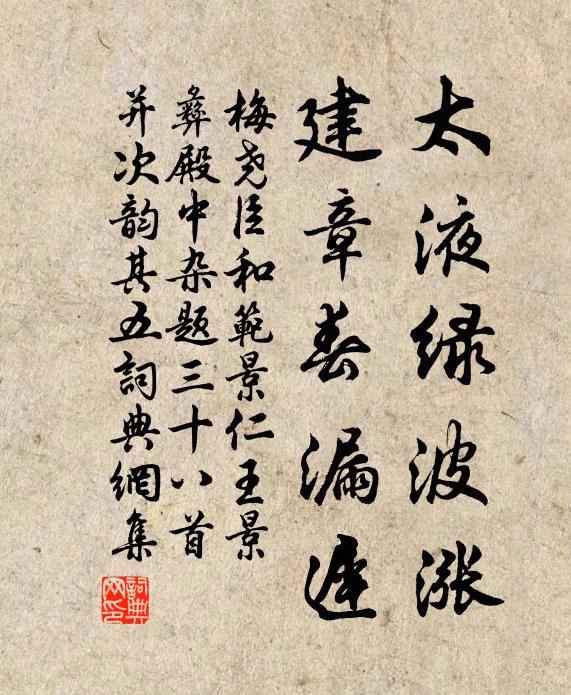 太液绿波涨
建章春漏遲
梅尭臣和範景仁王景
彝殿中杂题三十八首
并次韵其五詞典網集
詞典
网印